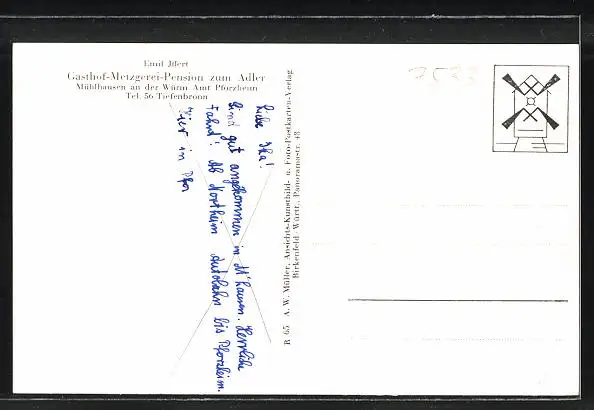 Emil Jftert
Gasthof-Metzgerei-Pension zum Adler
Mühlhausen an der Würm Amt Pforzheim
Tel. 56 Tiefenbronn
7533
Liebe Ika!
Sind gut angekommen in M'hausen. Herrliche
Fahrt! Ab Northeim Autobahn bis Pforzheim.
Hier in Pfor
B 65 A. W. Müller, Ansichts-Kunstbild- u. Foto-Postkarten-Verlag
Birkenfeld-Württ., Panoramastr. 48